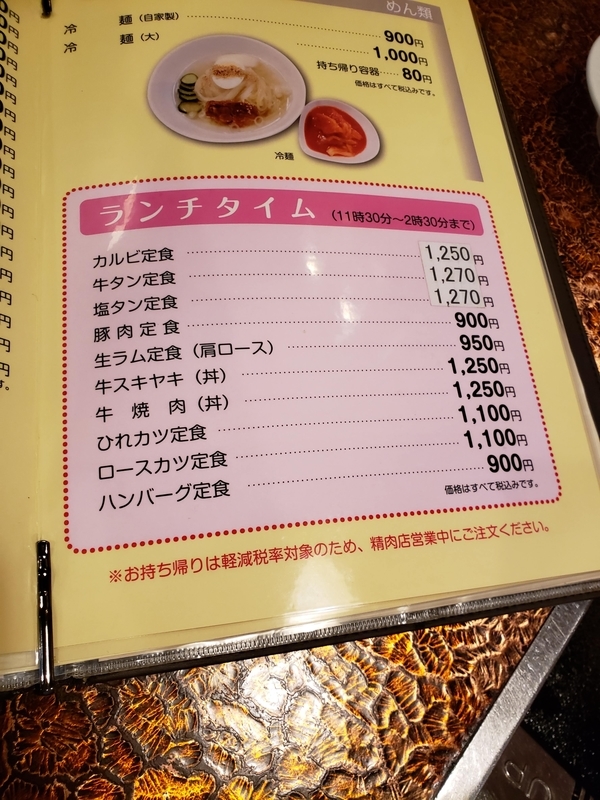 めん類
冷 麺（自家製） 900円
冷 麺（大） 1,000円
持ち帰り容器 80円
価格はすべて税込みです。
冷麺
ランチタイム（11時30分～2時30分まで）
カルビ定食 1,250円
牛タン定食 1,270円
塩タン定食 1,270円
豚肉定食 900円
生ラム定食（肩ロース） 950円
牛スキヤキ（丼） 1,250円
牛焼肉（丼） 1,250円
ひれカツ定食 1,100円
ロースカツ定食 1,100円
ハンバーグ定食 900円
価格はすべて税込みです。
※お持ち帰りは軽減税率対象のため、精肉店営業中にご注文ください。